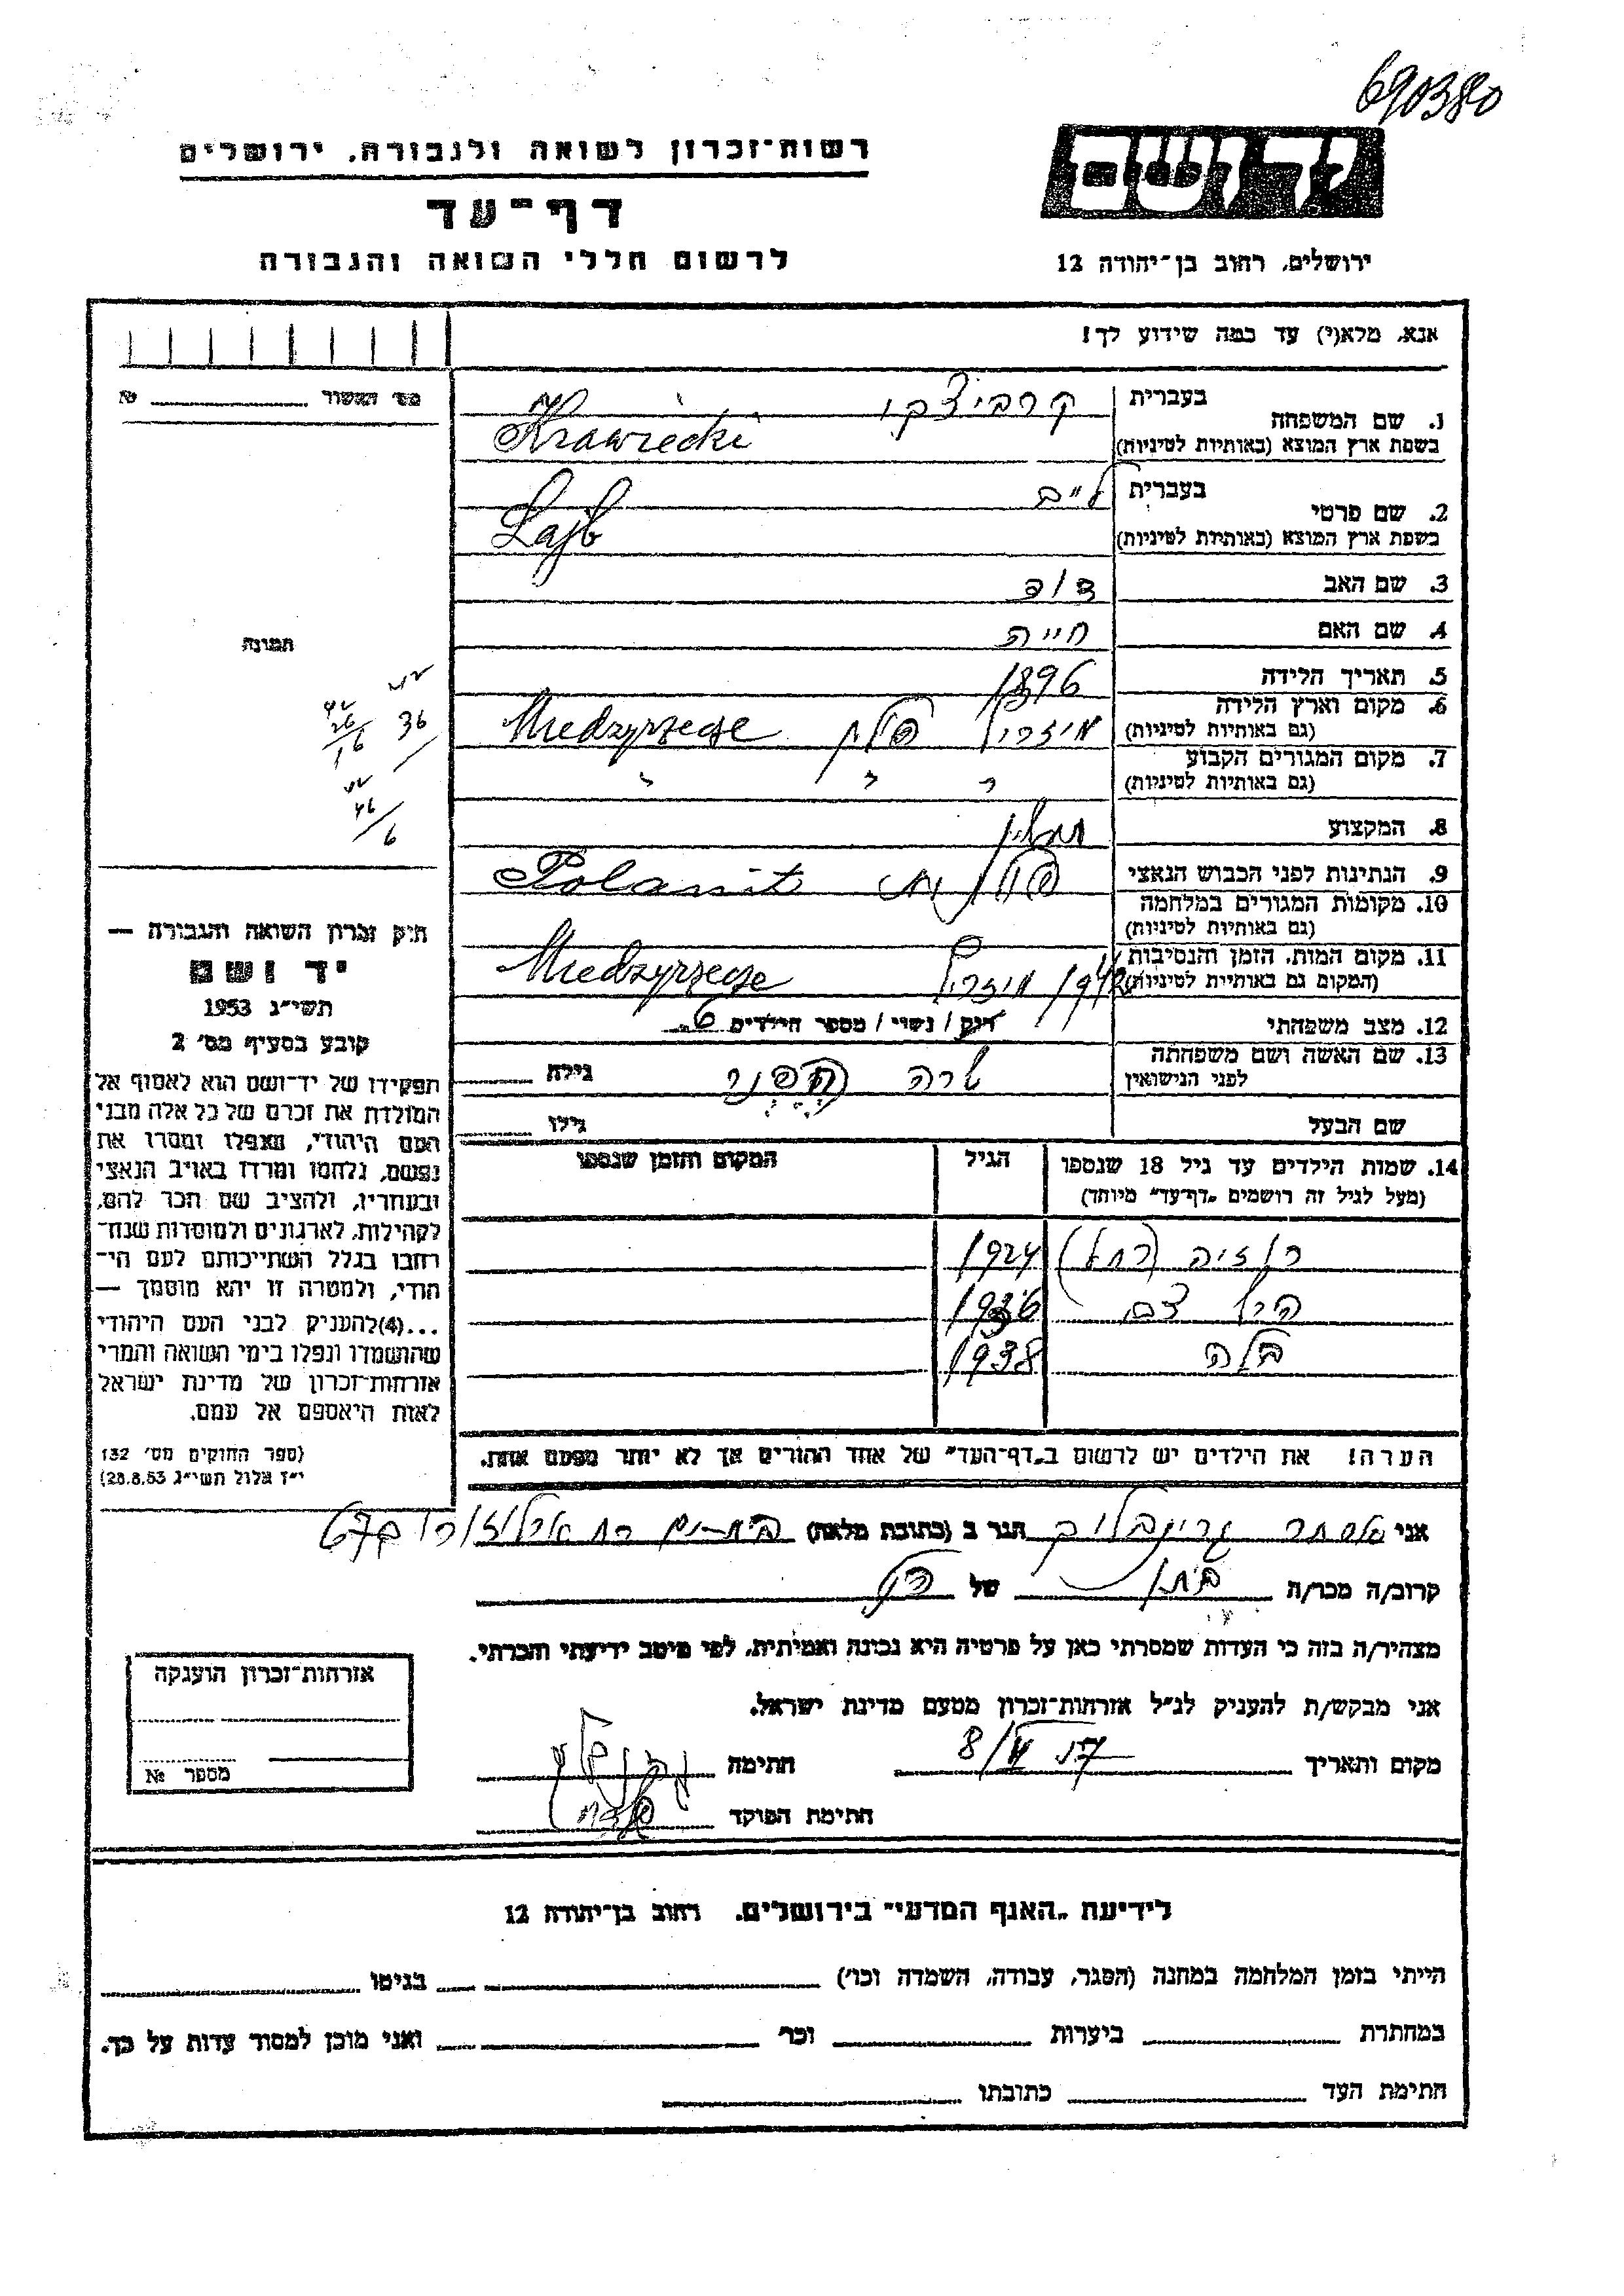 690380
רשות־זכרון לשואה ולגבורה, ירושלים
דף־עד
לרשום חללי השואה והגבורה
יד ושם
ירושלים, רחוב בן־יהודה 12
אנא, מלא(י) עד כמה שידוע לך!
מס׳ האשור №
1. שם המשפחה
בעברית קרביצקי
בשפת ארץ המוצא (באותיות לטיניות) Krawiecki
2. שם פרטי
בעברית לייב
בשפת ארץ המוצא (באותיות לטיניות) Lajb
3. שם האב דוב
4. שם האם חייה
5. תאריך הלידה 1896
6. מקום וארץ הלידה
(גם באותיות לטיניות) פולין Miedzyrzecze
7. מקום המגורים הקבוע
(גם באותיות לטיניות) " " "
8. המקצוע
9. הנתינות לפני הכבוש הנאצי פולנית Polanit
10. מקומות המגורים במלחמה
(גם באותיות לטיניות)
11. מקום המות, הזמן והנסיבות
(המקום גם באותיות לטיניות) 1942 Miedzyrzecze
12. מצב משפחתי רוק / נשוי / מספר הילדים 6
13. שם האשה ושם משפחתה
לפני הנישואין שרה גילה
שם הבעל גילו
14. שמות הילדים עד גיל 18 שנספו
(מעל לגיל זה רושמים „דף־עד” מיוחד)
הגיל
המקום והזמן שנספו
רוזיה (רחל) 1924
1936
בלה 1938
הערה! את הילדים יש לרשום ב„דף־העד” של אחד ההורים אך לא יותר מפעם אחת.
תמונה
36
26
16
46
6
חוק זכרון השואה והגבורה —
יד ושם
תשי״ג 1953
קובע בסעיף מס׳ 2
תפקידו של יד־ושם הוא לאסוף אל
המולדת את זכרם של כל אלה מבני
העם היהודי, שנפלו ומסרו את
נפשם, נלחמו ומרדו באויב הנאצי
ובעוזריו, ולהציב שם וזכר להם,
לקהילות, לארגונים ולמוסדות שנח־
רבו בגלל השתייכותם לעם הי־
הודי, ולמטרה זו יהא מוסמך —
...(4)להעניק לבני העם היהודי
שהושמדו ונפלו בימי השואה והמרי
אזרחות־זכרון של מדינת ישראל
לאות היאספם אל עמם.
(ספר החוקים מס׳ 132
י״ז אלול תשי״ג 28.8.53)
אני אסתר הגר ב (כתובת מלאה) בת־ים רח
קרוב/ה מכר/ה של
מצהיר/ה בזה כי העדות שמסרתי כאן על פרטיה היא נכונה ואמיתית, לפי מיטב ידיעתי והכרתי.
אני מבקש/ת להעניק לנ״ל אזרחות־זכרון מטעם מדינת ישראל.
מקום ותאריך חתימה
חתימת הפוקד
אזרחות־זכרון הוענקה
מספר №
לידיעת „האגף המדעי” בירושלים, רחוב בן־יהודה 12
הייתי בזמן המלחמה במחנה (הסגר, עבודה, השמדה וכו׳) בגיטו
במחתרת ביערות וכו׳ ואני מוכן למסור עדות על כך.
חתימת העד כתובתו